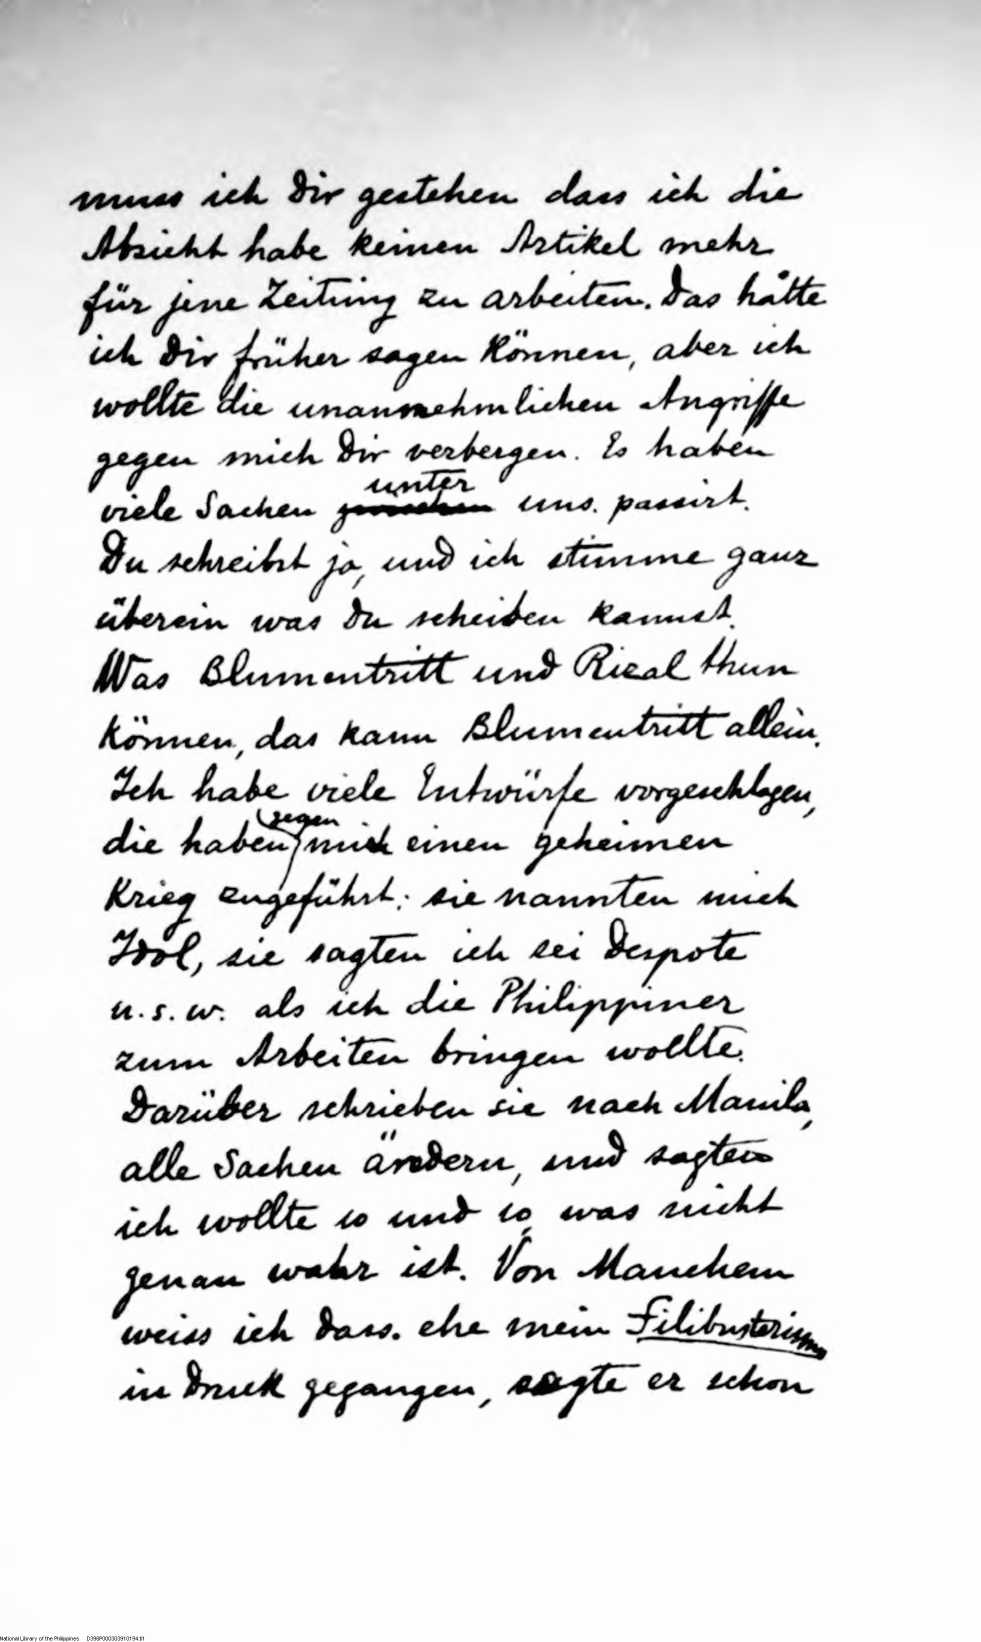 muss ich Dir gestehen dass ich die
Absicht habe keinen Artikel mehr
für jene Zeitung zu arbeiten. Das hätte
ich Dir früher sagen können, aber ich
wollte die unannehmlichen Angriffe
gegen mich Dir verbergen. Es haben
unter
viele Sachen zwischen uns. passirt.
Du schreibst ja, und ich stimme ganz
überein was Du scheiben kannst.
Was Blumentritt und Rizal thun
können, das kann Blumentritt allein.
Ich habe viele Entwürfe vorgeschlagen,
gegen
die haben mich einen geheimen
Krieg zugeführt: sie nannten mich
Idol, sie sagten ich sei Despote
u. s. w. als ich die Philippiner
zum Arbeiten bringen wollte.
Darüber schrieben sie nach Manila,
alle Sachen ändern, und sagten
ich wollte so und so, was nicht
genau wahr ist. Von Manchem
weiss ich dass. ehe mein Filibusterismo
in Druck gegangen, sagte er schon
National Library of the Philippines D396P000303910194.tif